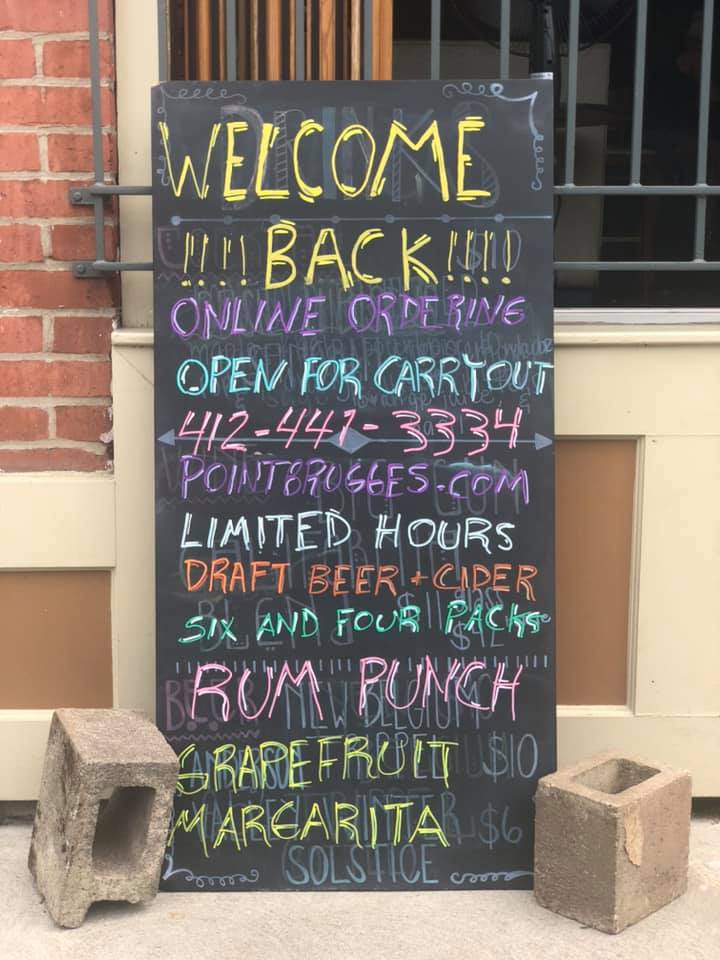 WELCOME
!!!! BACK !!!!
ONLINE ORDERING
OPEN FOR CARRYOUT
412-441-3334
POINTBRUGGES.COM
LIMITED HOURS
DRAFT BEER + CIDER
SIX AND FOUR PACKS
RUM PUNCH
GRAPEFRUIT $10
MARGARITA $6
SOLSTICE